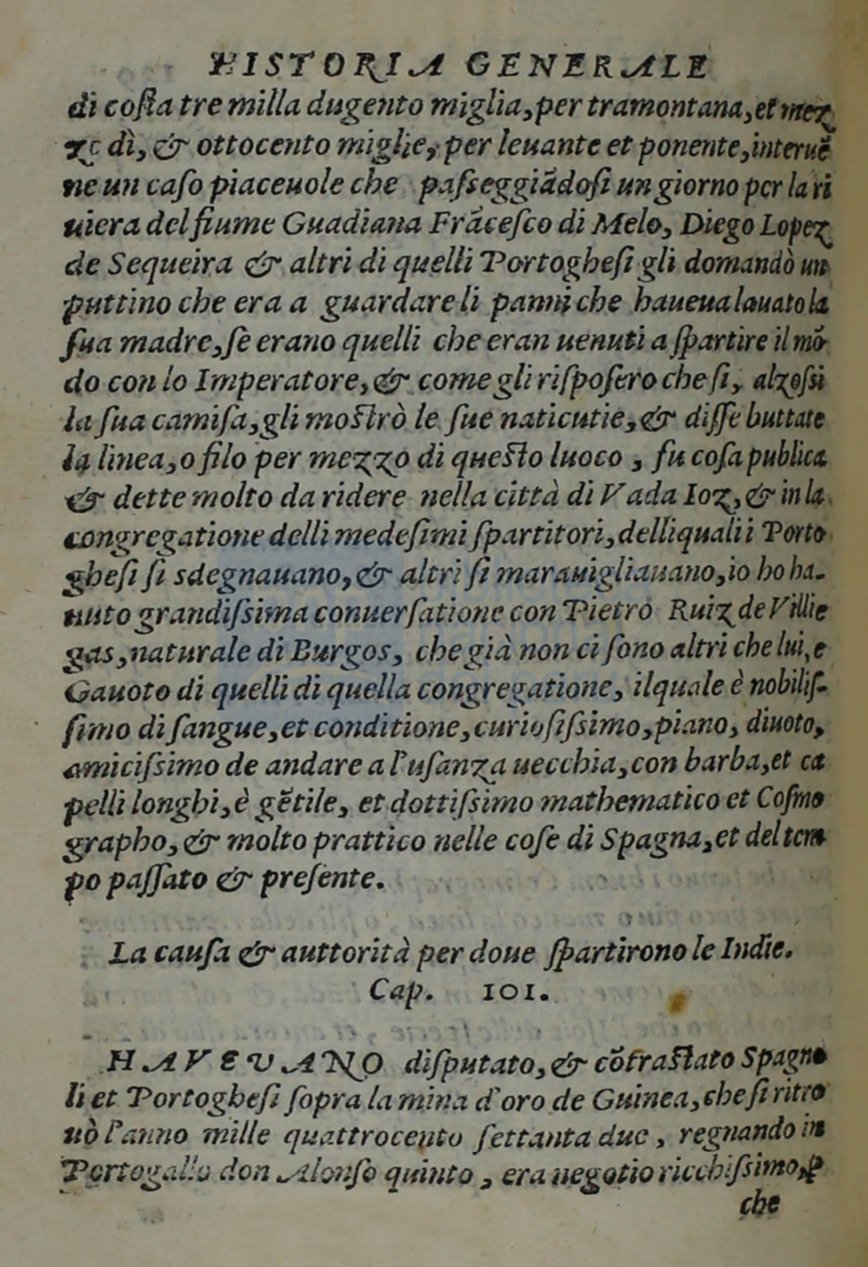 HISTORIA GENERALE
di costa tre milla dugento miglia, per tramontana, et mez
zo dì, & ottocento miglie, per leuante et ponente, interuẽ
ne un caso piaceuole che passeggiãdosi un giorno per la ri
uiera del fiume Guadiana Frãcesco di Melo, Diego Lopez
de Sequeira & altri di quelli Portoghesi gli domandò un
puttino che era a guardare li panni che haueua lauato la
sua madre, se erano quelli che eran uenuti a spartire il mõ
do con lo Imperatore, & come gli risposero che si, alzossi
la sua camisa, gli mostrò le sue naticutie, & disse buttate
la linea, o filo per mezzo di questo luoco, fu cosa publica
& dette molto da ridere nella città di Vada Ioz, & in la
congregatione delli medesimi spartitori, delliquali i Porto
ghesi si sdegnauano, & altri si marauigliauano, io ho ha-
uuto grandissima conuersatione con Pietro Ruiz de Villie
gas, naturale di Burgos, che già non ci sono altri che lui, e
Gauoto di quelli di quella congregatione, ilquale è nobilis-
simo di sangue, et conditione, curiosissimo, piano, diuoto,
amicissimo de andare a l'usanza uecchia, con barba, et ca
pelli longhi, è gẽtile, et dottissimo mathematico et Cosmo
grapho, & molto prattico nelle cose di Spagna, et del tem
po passato & presente.
La causa & auttorità per doue spartirono le Indie.
Cap. 101.
HAVEVANO disputato, & cõtrastato Spagno
li et Portoghesi sopra la mina d'oro de Guinea, che si ritro
uò l'anno mille quattrocento settanta due, regnando in
Portogallo don Alonso quinto, era negotio ricchissimo, ꝑ
che